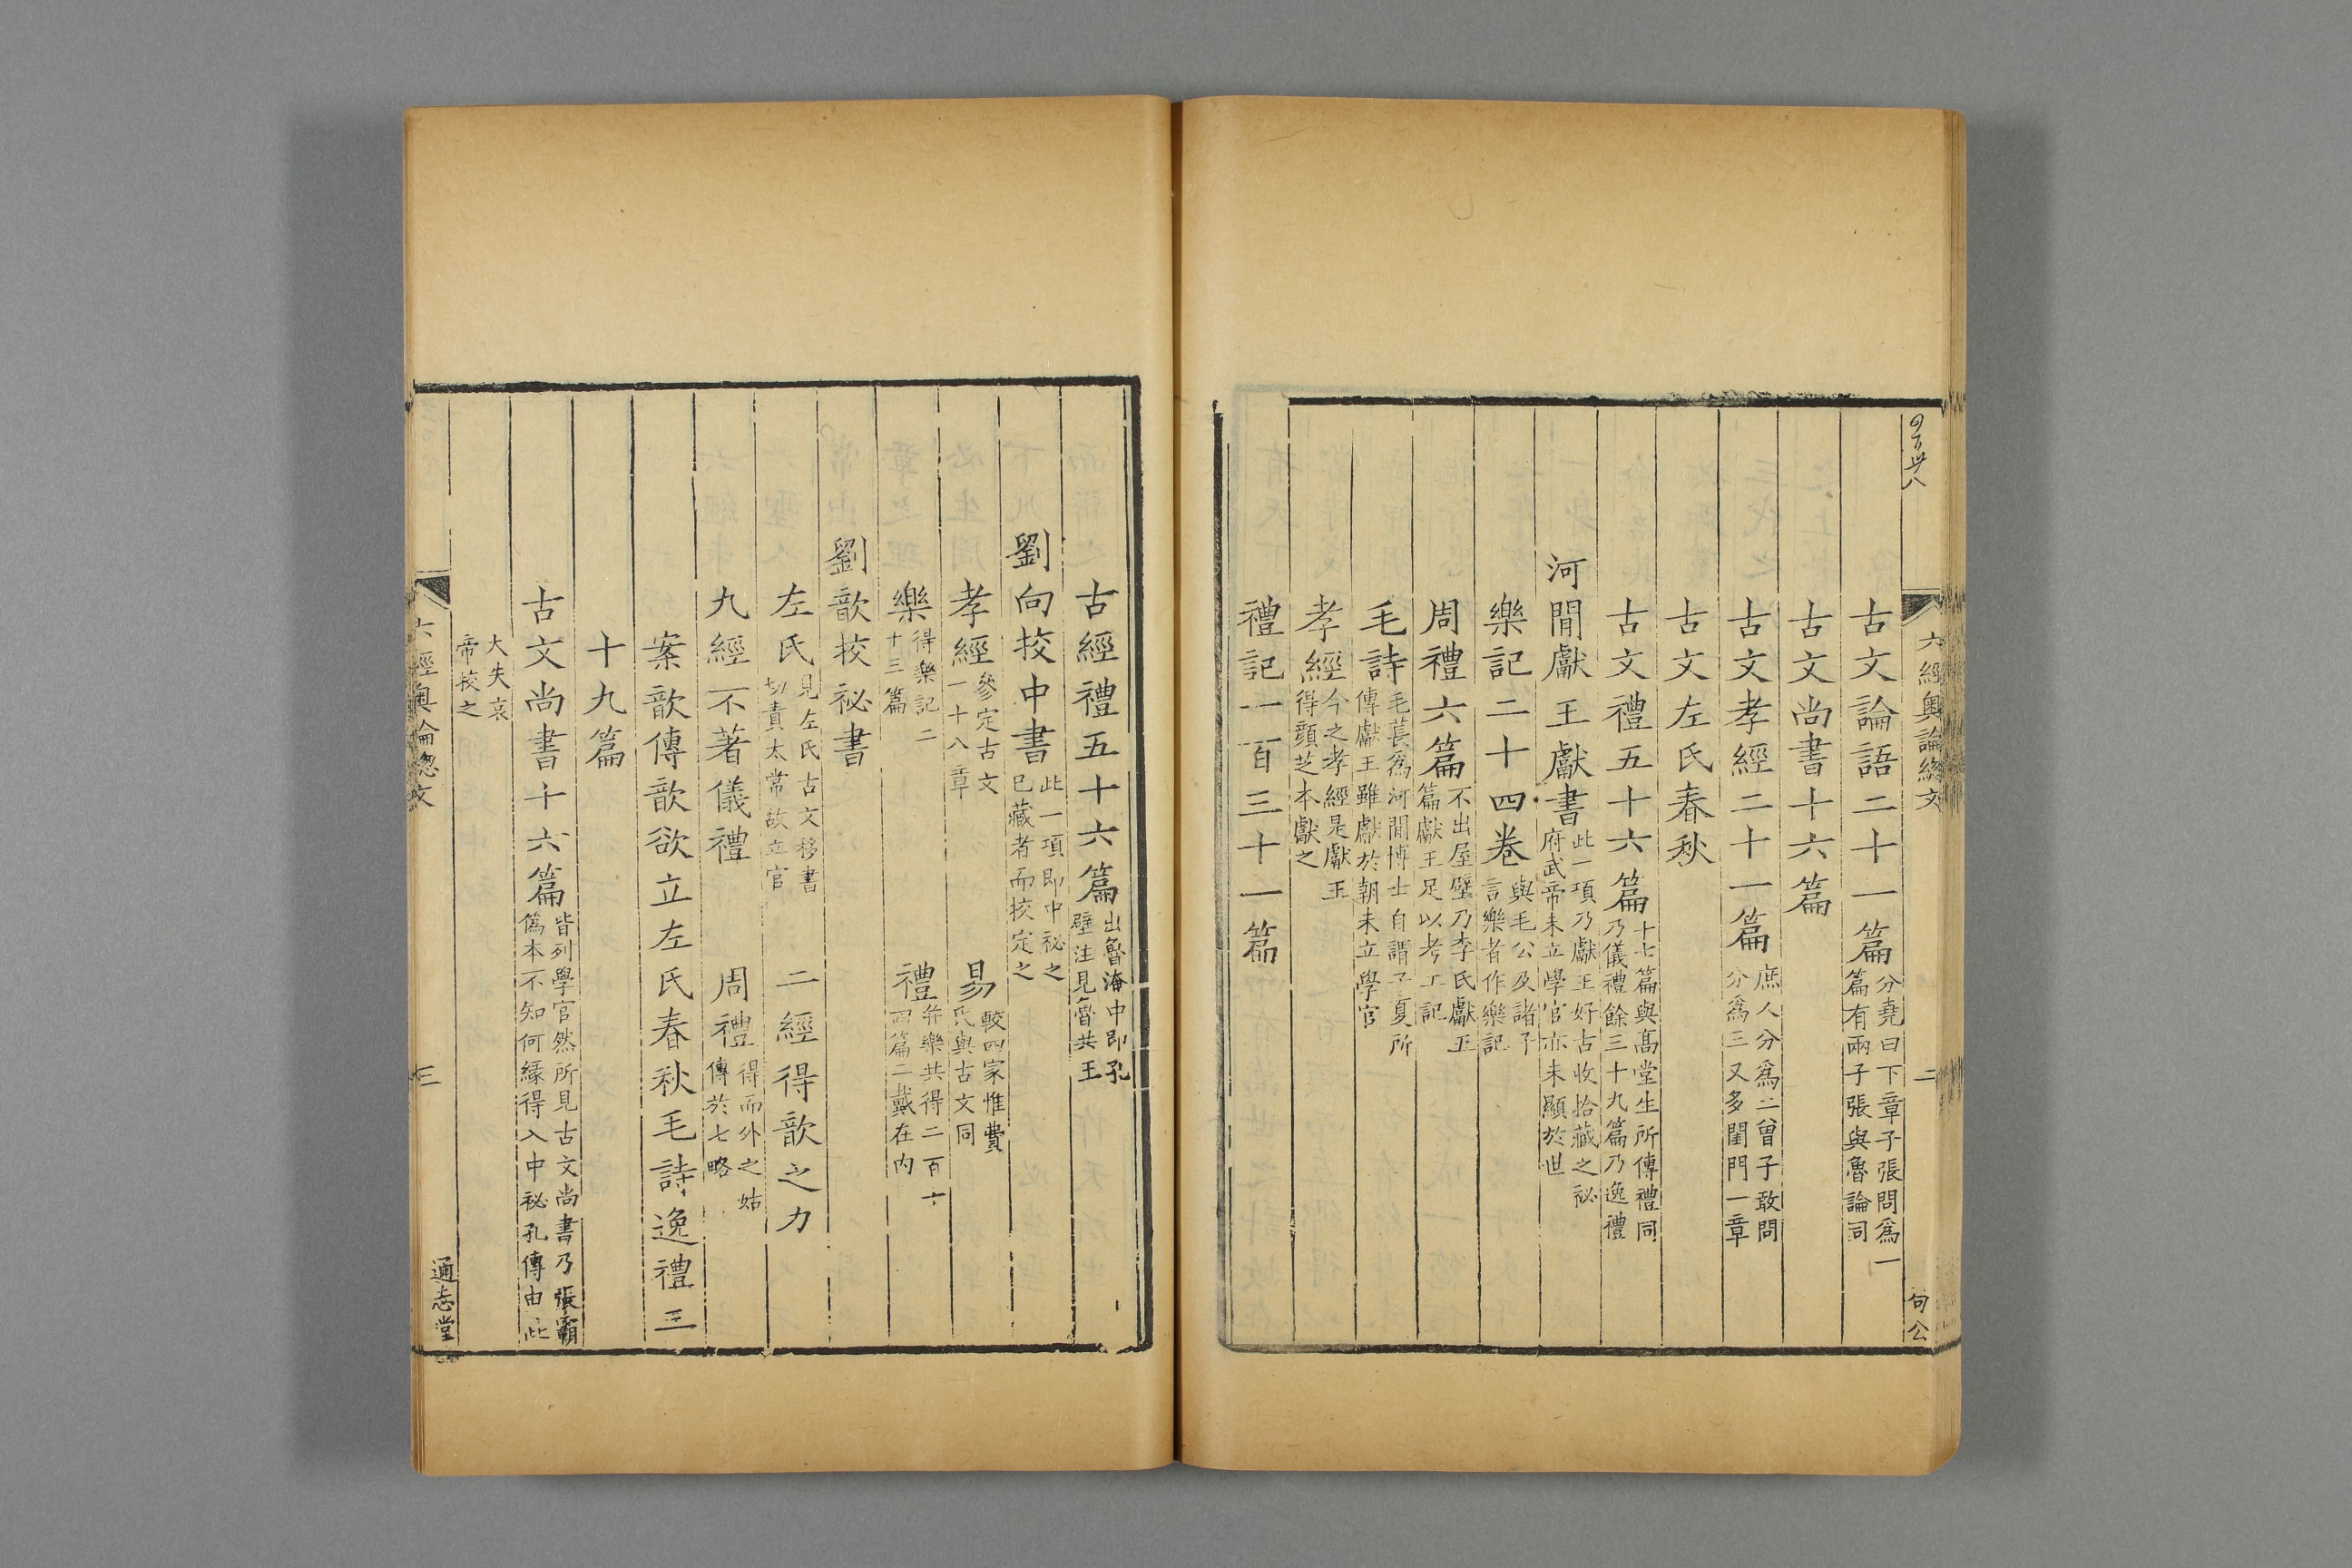 六經奧論總文
二
句公
古文論語二十一篇分堯曰下章子張問爲一篇有兩子張與魯論同
古文尚書十六篇
古文孝經二十一篇庶人分爲二曾子敢問分爲三又多閨門一章
古文左氏春秋
古文禮五十六篇十七篇與高堂生所傳禮同乃儀禮餘三十九篇乃逸禮
河閒獻王獻書此一項乃獻王好古收拾藏之祕府武帝未立學官亦未顯於世
樂記二十四卷與毛公及諸子言樂者作樂記
周禮六篇不出屋壁乃李氏獻王篇獻王足以考工記
毛詩毛萇爲河閒博士自謂子夏所傳獻王雖獻於朝未立學官
孝經今之孝經是獻王得顔芝本獻之
禮記一百三十一篇
古經禮五十六篇出魯淹中即孔壁注見魯共王
劉向挍中書此一項即中祕之已藏者而挍定之
孝經參定古文一十八章　易較四家惟費氏與古文同
樂得樂記二十三篇　禮并樂共得二百十四篇二戴在内
劉歆挍祕書
左氏見左氏古文移書切責太常故立官　二經得歆之力
九經不著儀禮　周禮得而外之姑傳於七略
案歆傳歆欲立左氏春秋毛詩逸禮三
十九篇
古文尚書十六篇皆列學官然所見古文尚書乃張霸僞本不知何緣得入中祕孔傳由此
大失哀帝挍之
六經奧論總文
三
通志堂